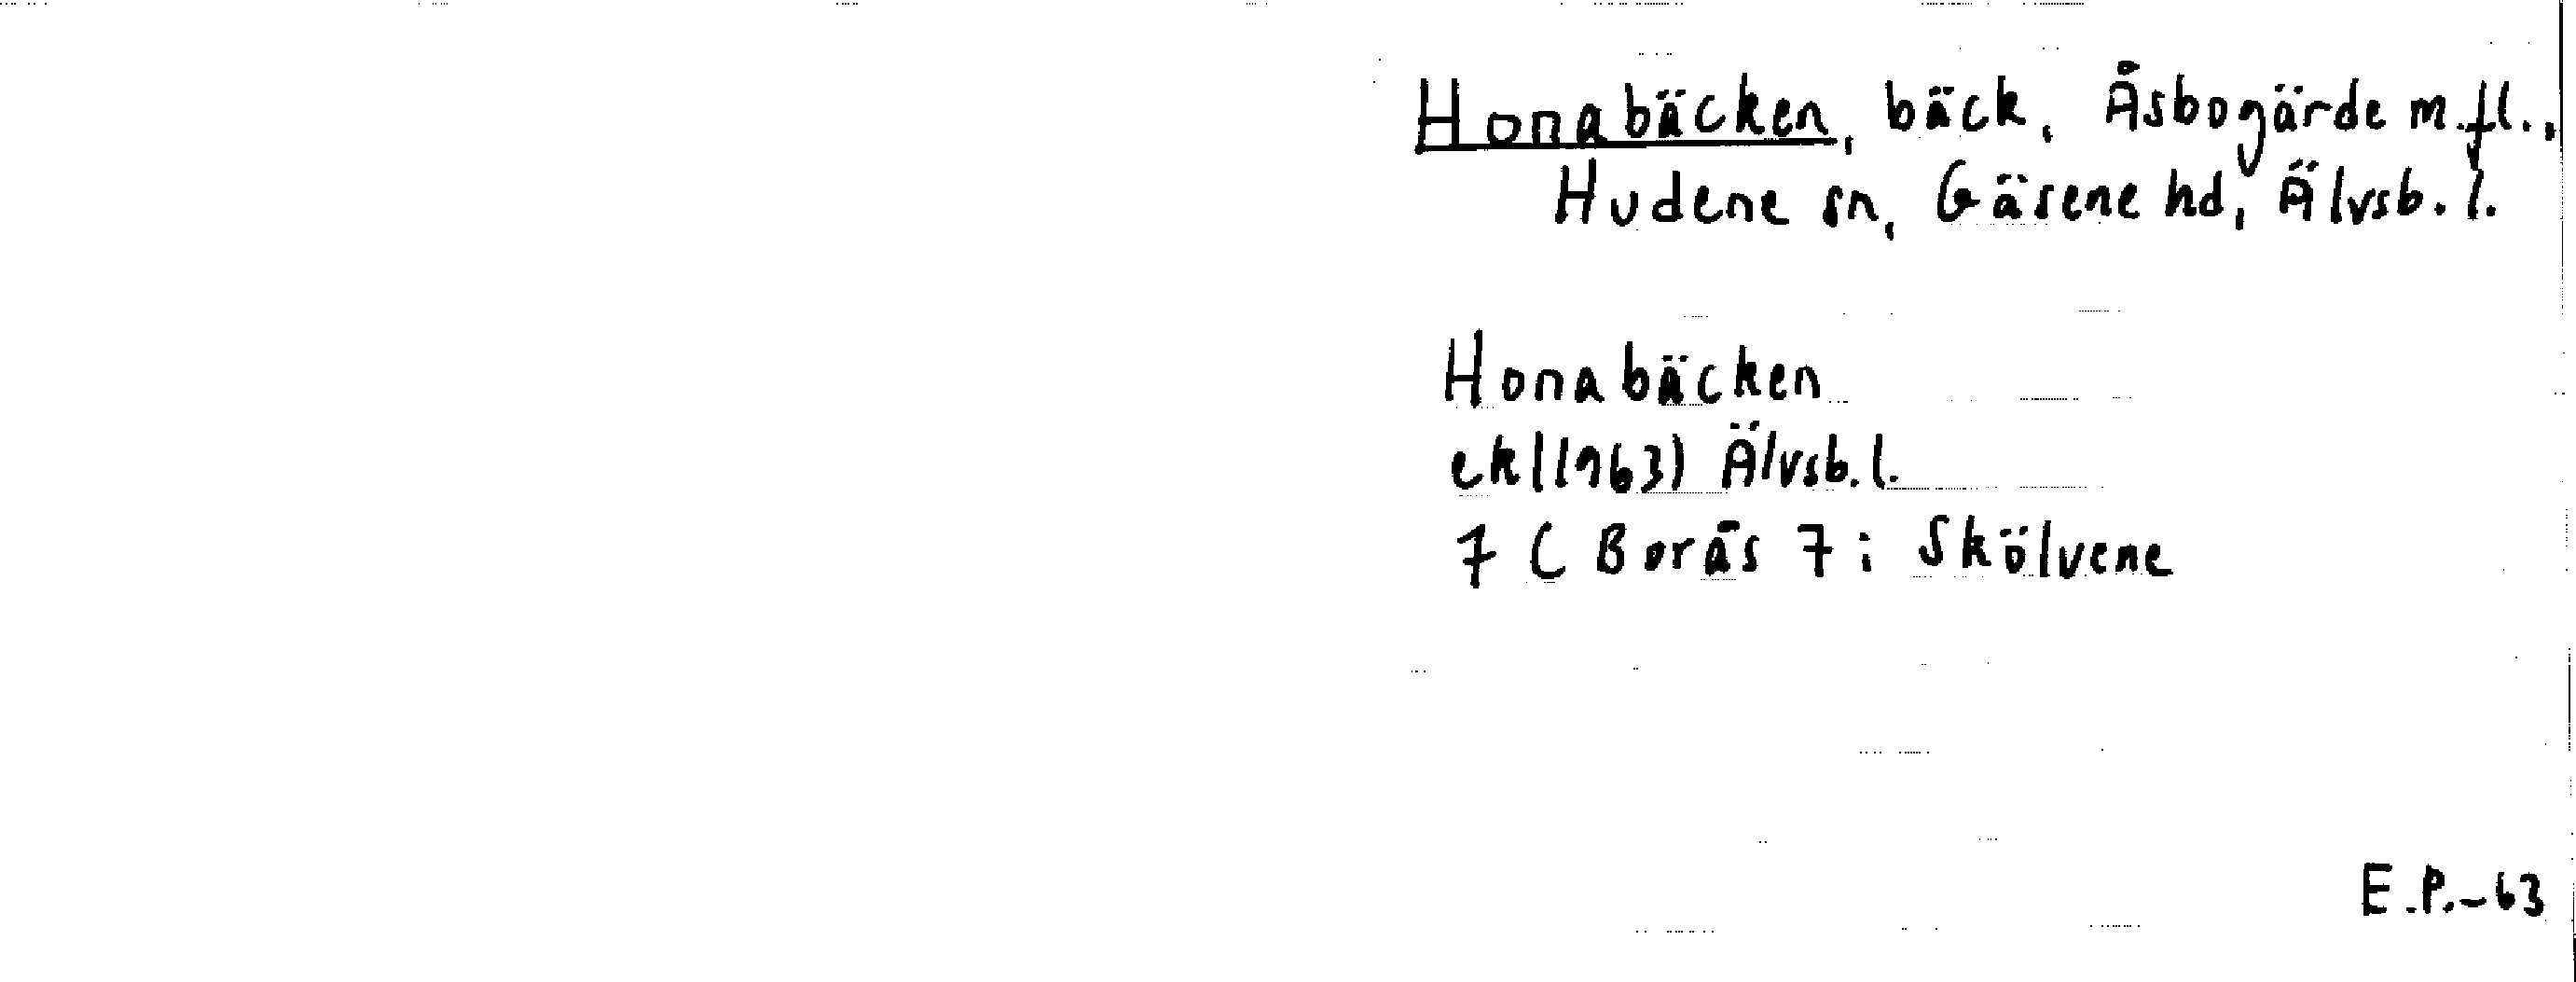 Honabäcken, bäck, Åsbogärde m.fl.,
Hudene sn, Gäsene hd, Älvsb. l.
Honabäcken
ek(1963) Älvsb. l.
7 C Borås 7 i Skölvene
E.P.-63